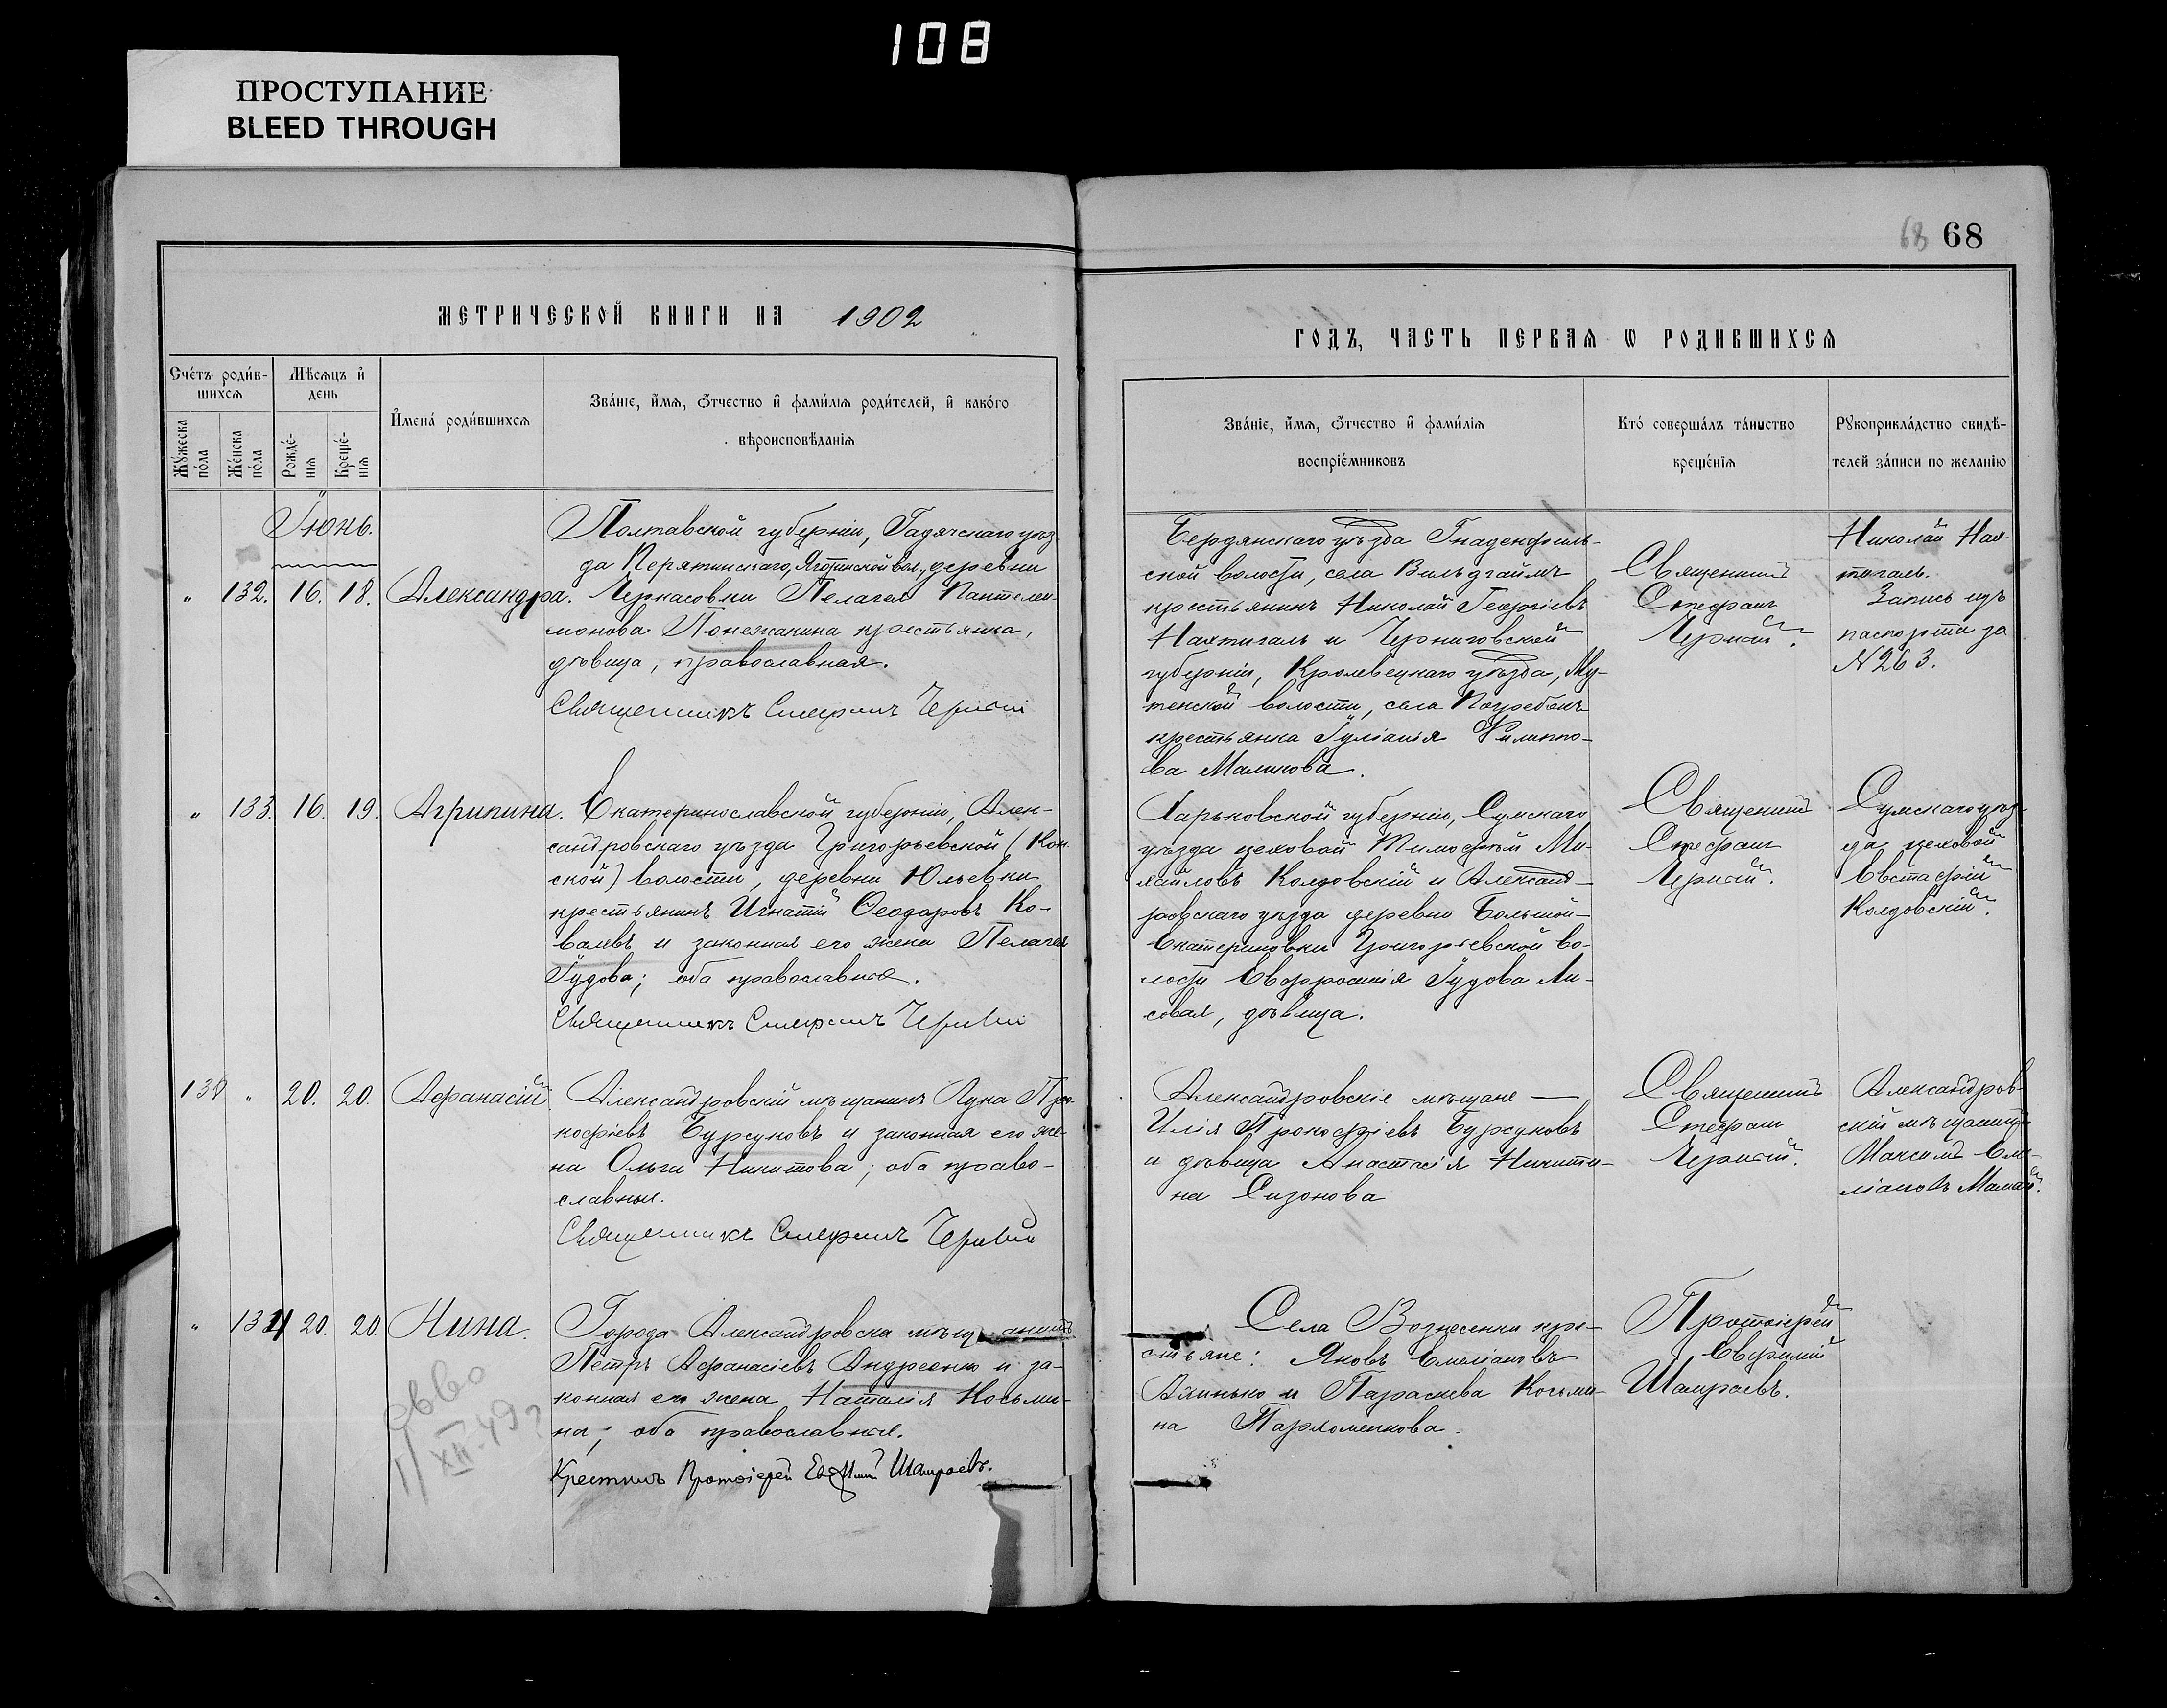 108
ПРОСТУПАНИЕ
BLEED THROUGH
68 68
МЕТРИЧЕСКОЙ КНИГИ НА 1902
ГОДЪ, ЧАСТЬ ПЕРВАЯ Ѡ РОДИВШИХСЯ
Счетъ родив-
шихся
Мѣсяцъ и
день
Мужеска
пола
Женска
пола
Рожде-
нія
Креще-
нія
Имена родившихся
Званіе, имя, отчество и фамилія родителей, и какого
вѣроисповѣданія
Званіе, имя, отчество и фамилія
воспріемниковъ
Кто совершалъ таинство
крещенія
Рукоприкладство свидѣ-
телей записи по желанію
Іюнь.
" 132. 16. 18. Александра.
Полтавской губерніи, Гадячскаго уѣз
да Пирятинскаго, Яготинской вол., деревни
Черкасовки Пелагея Пантелеи-
монова Понежакина крестьянка,
дѣвица, православная.
Священникъ Стефанъ Черный
Бердянскаго уѣзда Гнаденфель-
ской волости, села Вальдгаймъ
крестьянинъ Николай Георгіевъ
Нахтигаль и Черниговской
губерніи, Кролевецкаго уѣзда, Му-
тенской волости, села Погребокъ
крестьянка Іуліанія Филиппо-
ва Маликова.
Священникъ
Стефанъ
Черный.
Николай Нах-
тигаль.
Запись изъ
паспорта за
N 263.
" 133. 16. 19. Агрипина.
Екатеринославской губерніи, Алек-
сандровскаго уѣзда Григорьевской (Кон
ской) волости, деревни Юльевки
крестьянинъ Игнатій Ѳеодоровъ Ко-
валевъ и законная его жена Пелагея
Гудова; оба православные.
Священникъ Стефанъ Черный
Харьковской губерніи, Сумскаго
уѣзда цеховой Тимофей Ми-
хайловъ Колдовскій и Александ-
ровскаго уѣзда деревни Большой-
Екатериновки Григорьевской во-
лости Евфросинія Гудова Ли-
совая, дѣвица.
Священникъ
Стефанъ
Черный.
Сумскаго уѣз-
да цеховой
Евстафій
Колдовскій.
" 20. 20. Афанасій.
Александровскій мѣщанинъ Лука Про-
кофіевъ Бурсуковъ и законная его же-
на Ольга Никитова; оба право-
славные.
Священникъ Стефанъ Черный
Александровскіе мѣщане —
Илія Прокофіевъ Бурсуковъ
и дѣвица Анастасія Никити-
на Сизонова
Священникъ
Стефанъ
Черный.
Александров-
скій мѣщанинъ
Максимъ Еми-
ліановъ Мамай.
" 134 20. 20. Нина.
Города Александровска мѣщанинъ
Петръ Афанасіевъ Андреенко и за-
конная его жена Наталія Косьми-
на; оба православные.
Крестилъ Протоіерей Евфимій Шамраевъ.
Села Вознесенки кре-
стьяне: Яковъ Емеліановъ
и Параскева Косьми-
на Пархоменкова.
Протоіерей
Евфимій
Шамраевъ.